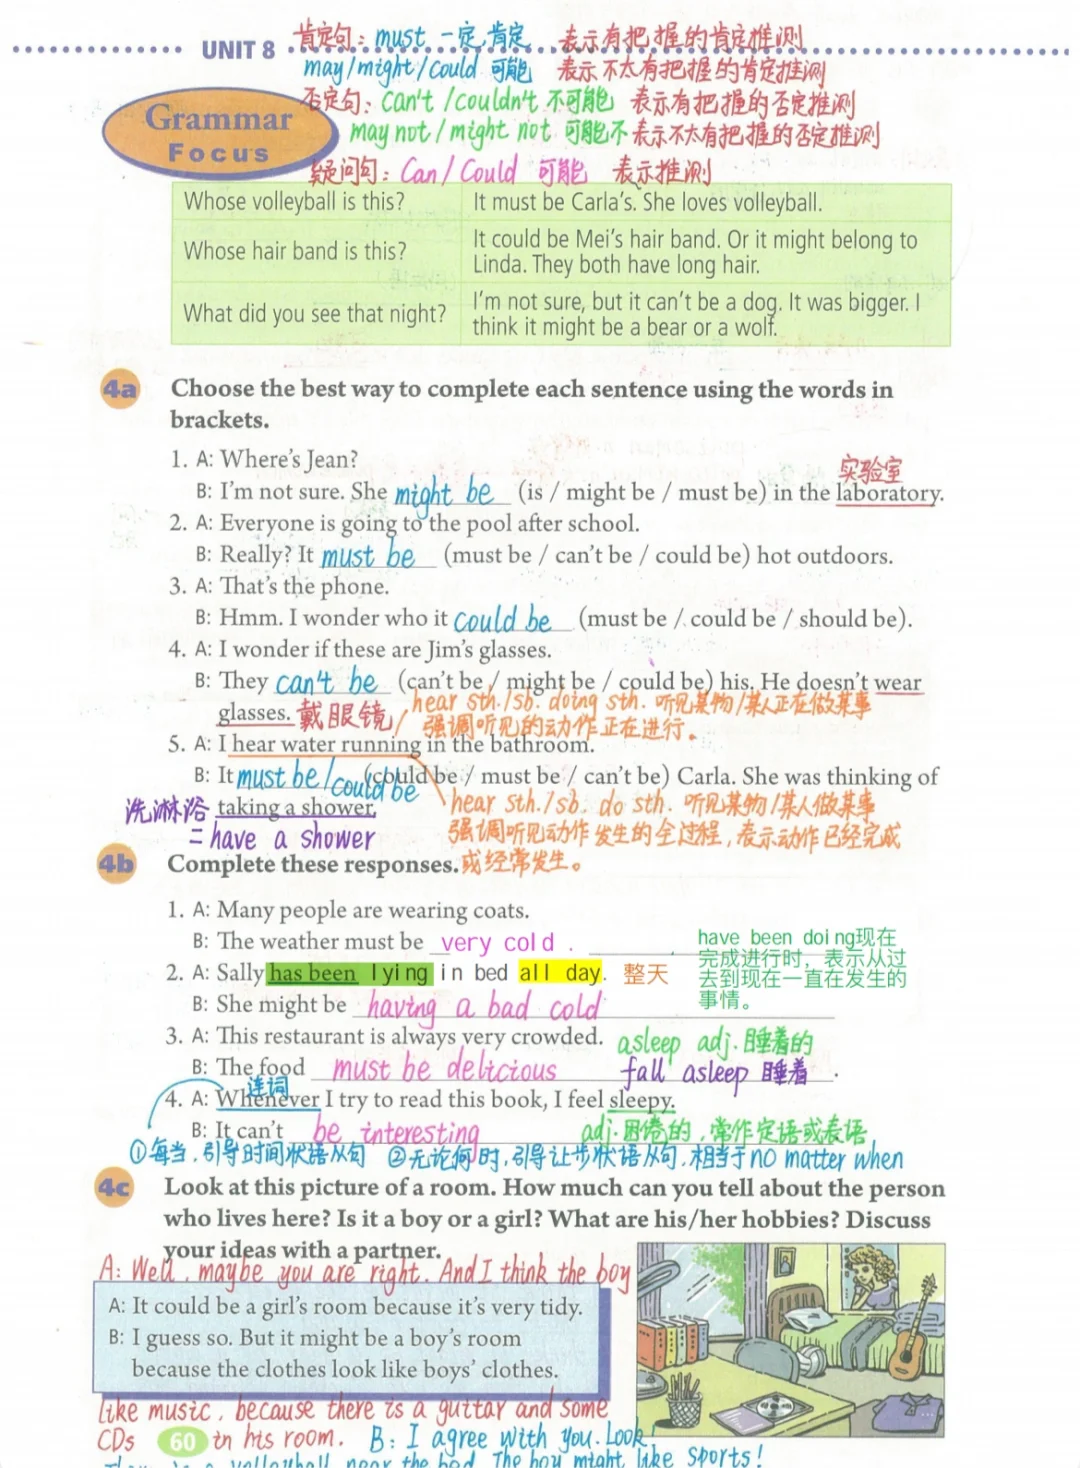 肯定句：must 一定，肯定 表示有把握的肯定推测
UNIT 8
may/might/could 可能 表示不太有把握的肯定推测
否定句：can't /couldn't 不可能 表示有把握的否定推测
Grammar
Focus
may not / might not 可能不 表示不太有把握的否定推测
疑问句：Can/ Could 可能 表示推测
Whose volleyball is this? It must be Carla's. She loves volleyball.
Whose hair band is this? It could be Mei's hair band. Or it might belong to
Linda. They both have long hair.
What did you see that night? I'm not sure, but it can't be a dog. It was bigger. I
think it might be a bear or a wolf.
4a Choose the best way to complete each sentence using the words in
brackets.
1. A: Where's Jean?
实验室
B: I'm not sure. She might be (is / might be / must be) in the laboratory.
2. A: Everyone is going to the pool after school.
B: Really? It must be (must be / can't be / could be) hot outdoors.
3. A: That's the phone.
B: Hmm. I wonder who it could be (must be / could be / should be).
4. A: I wonder if these are Jim's glasses.
B: They can't be (can't be / might be / could be) his. He doesn't wear
glasses. 戴眼镜
hear sth./sb. doing sth. 听见某物/某人正在做某事
强调听见的动作正在进行。
5. A: I hear water running in the bathroom.
B: It must be/could be (could be / must be / can't be) Carla. She was thinking of
洗淋浴 taking a shower.
= have a shower
hear sth./sb. do sth. 听见某物/某人做某事
强调听见动作发生的全过程，表示动作已经完成
或经常发生。
4b Complete these responses.
1. A: Many people are wearing coats.
B: The weather must be very cold .
have been doing现在
完成进行时，表示从过
去到现在一直在发生的
事情。
2. A: Sally has been lying in bed all day. 整天
B: She might be having a bad cold
3. A: This restaurant is always very crowded.
asleep adj. 睡着的
B: The food must be delicious .
fall asleep 睡着
连词
4. A: Whenever I try to read this book, I feel sleepy.
B: It can't be interesting
adj. 困倦的，常作定语或表语
①每当，引导时间状语从句 ②无论何时，引导让步状语从句，相当于no matter when
4c Look at this picture of a room. How much can you tell about the person
who lives here? Is it a boy or a girl? What are his/her hobbies? Discuss
your ideas with a partner.
A: Well, maybe you are right. And I think the boy
A: It could be a girl's room because it's very tidy.
B: I guess so. But it might be a boy's room
because the clothes look like boys' clothes.
like music, because there is a guitar and some
CDs in his room. B: I agree with you. Look!
60
There is a volleyball near the bed. The boy might like sports!